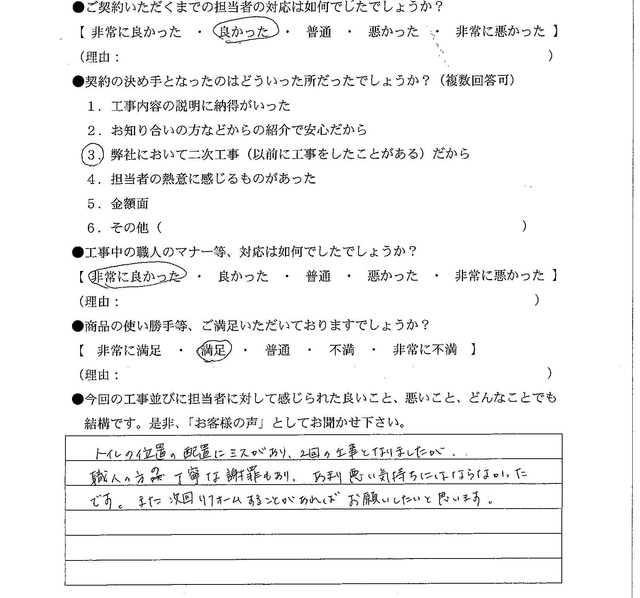 ●ご契約いただくまでの担当者の対応は如何でしたでしょうか?
【 非常に良かった ・ 良かった ・ 普通 ・ 悪かった ・ 非常に悪かった 】
(理由: )
●契約の決め手となったのはどういった所だったでしょうか?(複数回答可)
1.工事内容の説明に納得がいった
2.お知り合いの方などからの紹介で安心だから
3.弊社において二次工事(以前に工事をしたことがある)だから
4.担当者の熱意に感じるものがあった
5.金額面
6.その他( )
●工事中の職人のマナー等、対応は如何でしたでしょうか?
【 非常に良かった ・ 良かった ・ 普通 ・ 悪かった ・ 非常に悪かった 】
(理由: )
●商品の使い勝手等、ご満足いただいておりますでしょうか?
【 非常に満足 ・ 満足 ・ 普通 ・ 不満 ・ 非常に不満 】
(理由: )
●今回の工事並びに担当者に対して感じられた良いこと、悪いこと、どんなことでも
結構です。是非、「お客様の声」としてお聞かせ下さい。
トイレの位置の配置にミスがあり、2回の工事となりましたが、、
職人の方の丁寧な謝罪もあり、あまり悪い気持ちにはならなかった
です。また次回リフォームすることがあればお願いしたいと思います。